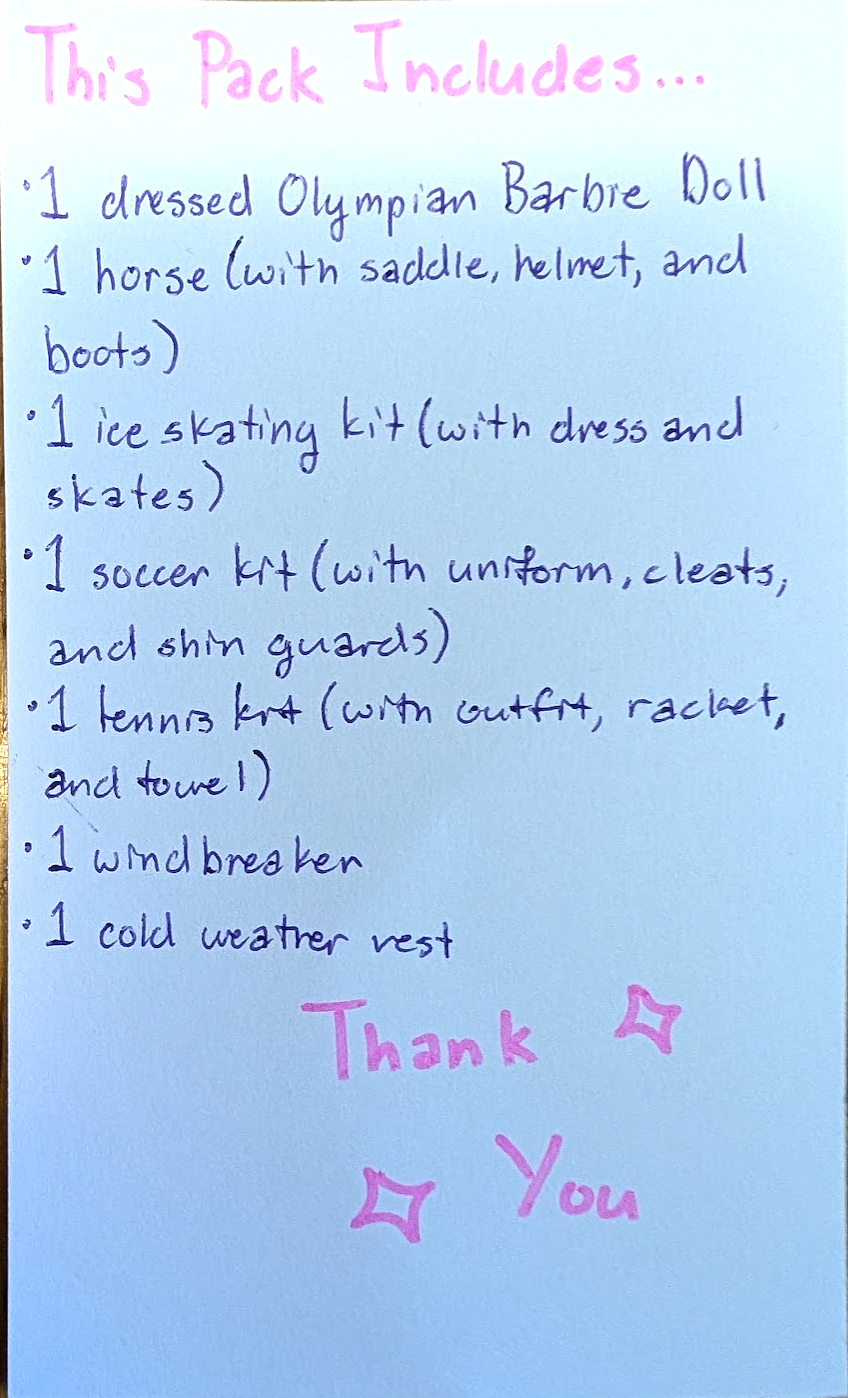 This Pack Includes...
•1 dressed Olympian Barbie Doll
•1 horse (with saddle, helmet, and
boots)
•1 ice skating kit (with dress and
skates)
•1 soccer kit (with uniform, cleats,
and shin guards)
•1 tennis kit (with outfit, racket,
and towel)
•1 windbreaker
•1 cold weather vest
Thank
You